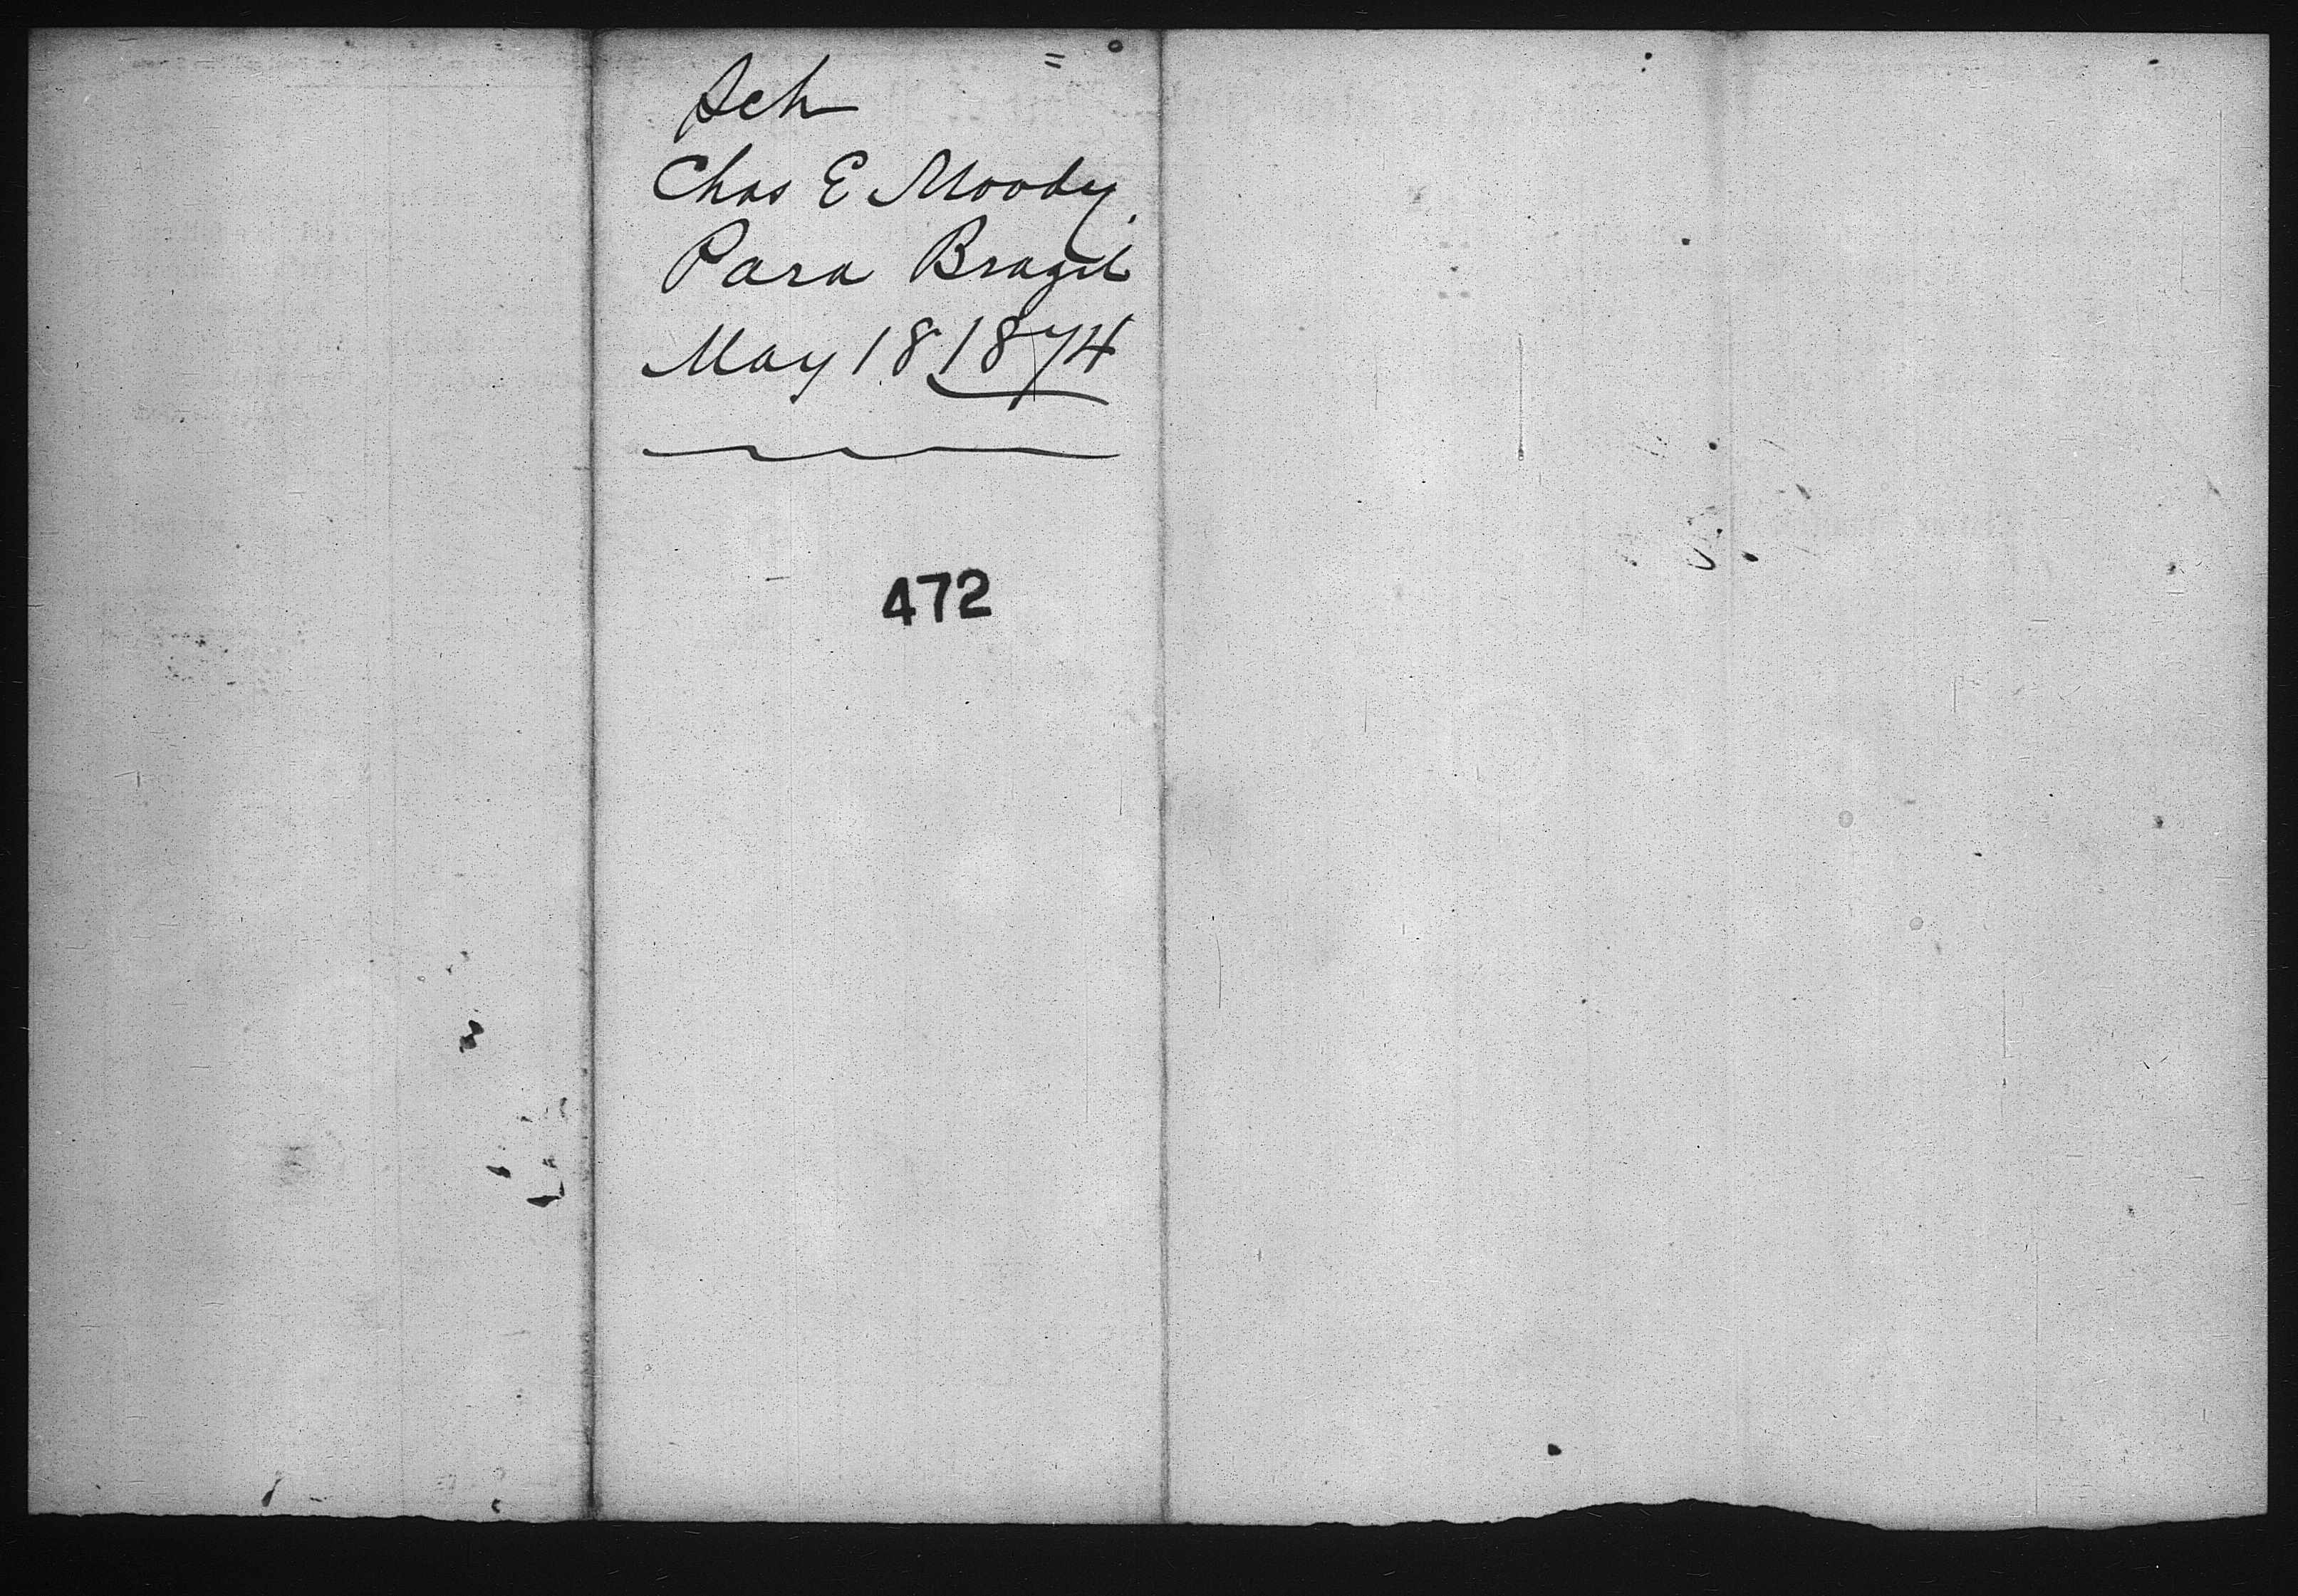 Sch
Chas E Moody
Para Brazil
May 18 1874
472